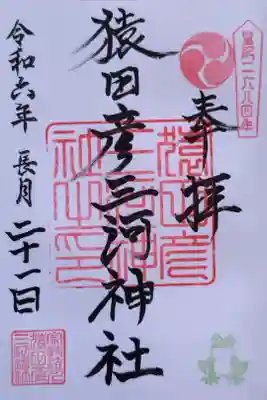 皇紀二六八四年
奉拝
猿田彦三河神社
令和六年 長月 二十一日